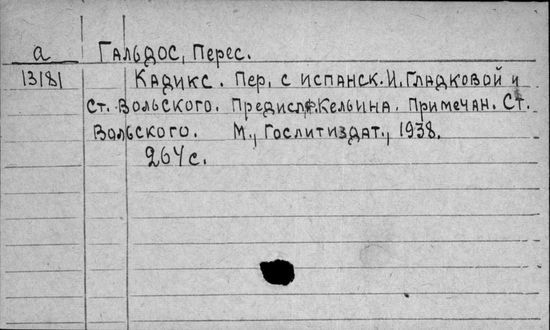 а ГАЛЬДОС, Перес.
13181 КАДИКС. Пер. с испанск. И. Гладковой и
Ст. Вольского. Предисл. Ф. Кельина. Примечан. Ст.
Вольского. М., Гослитиздат., 1938.
264 с.